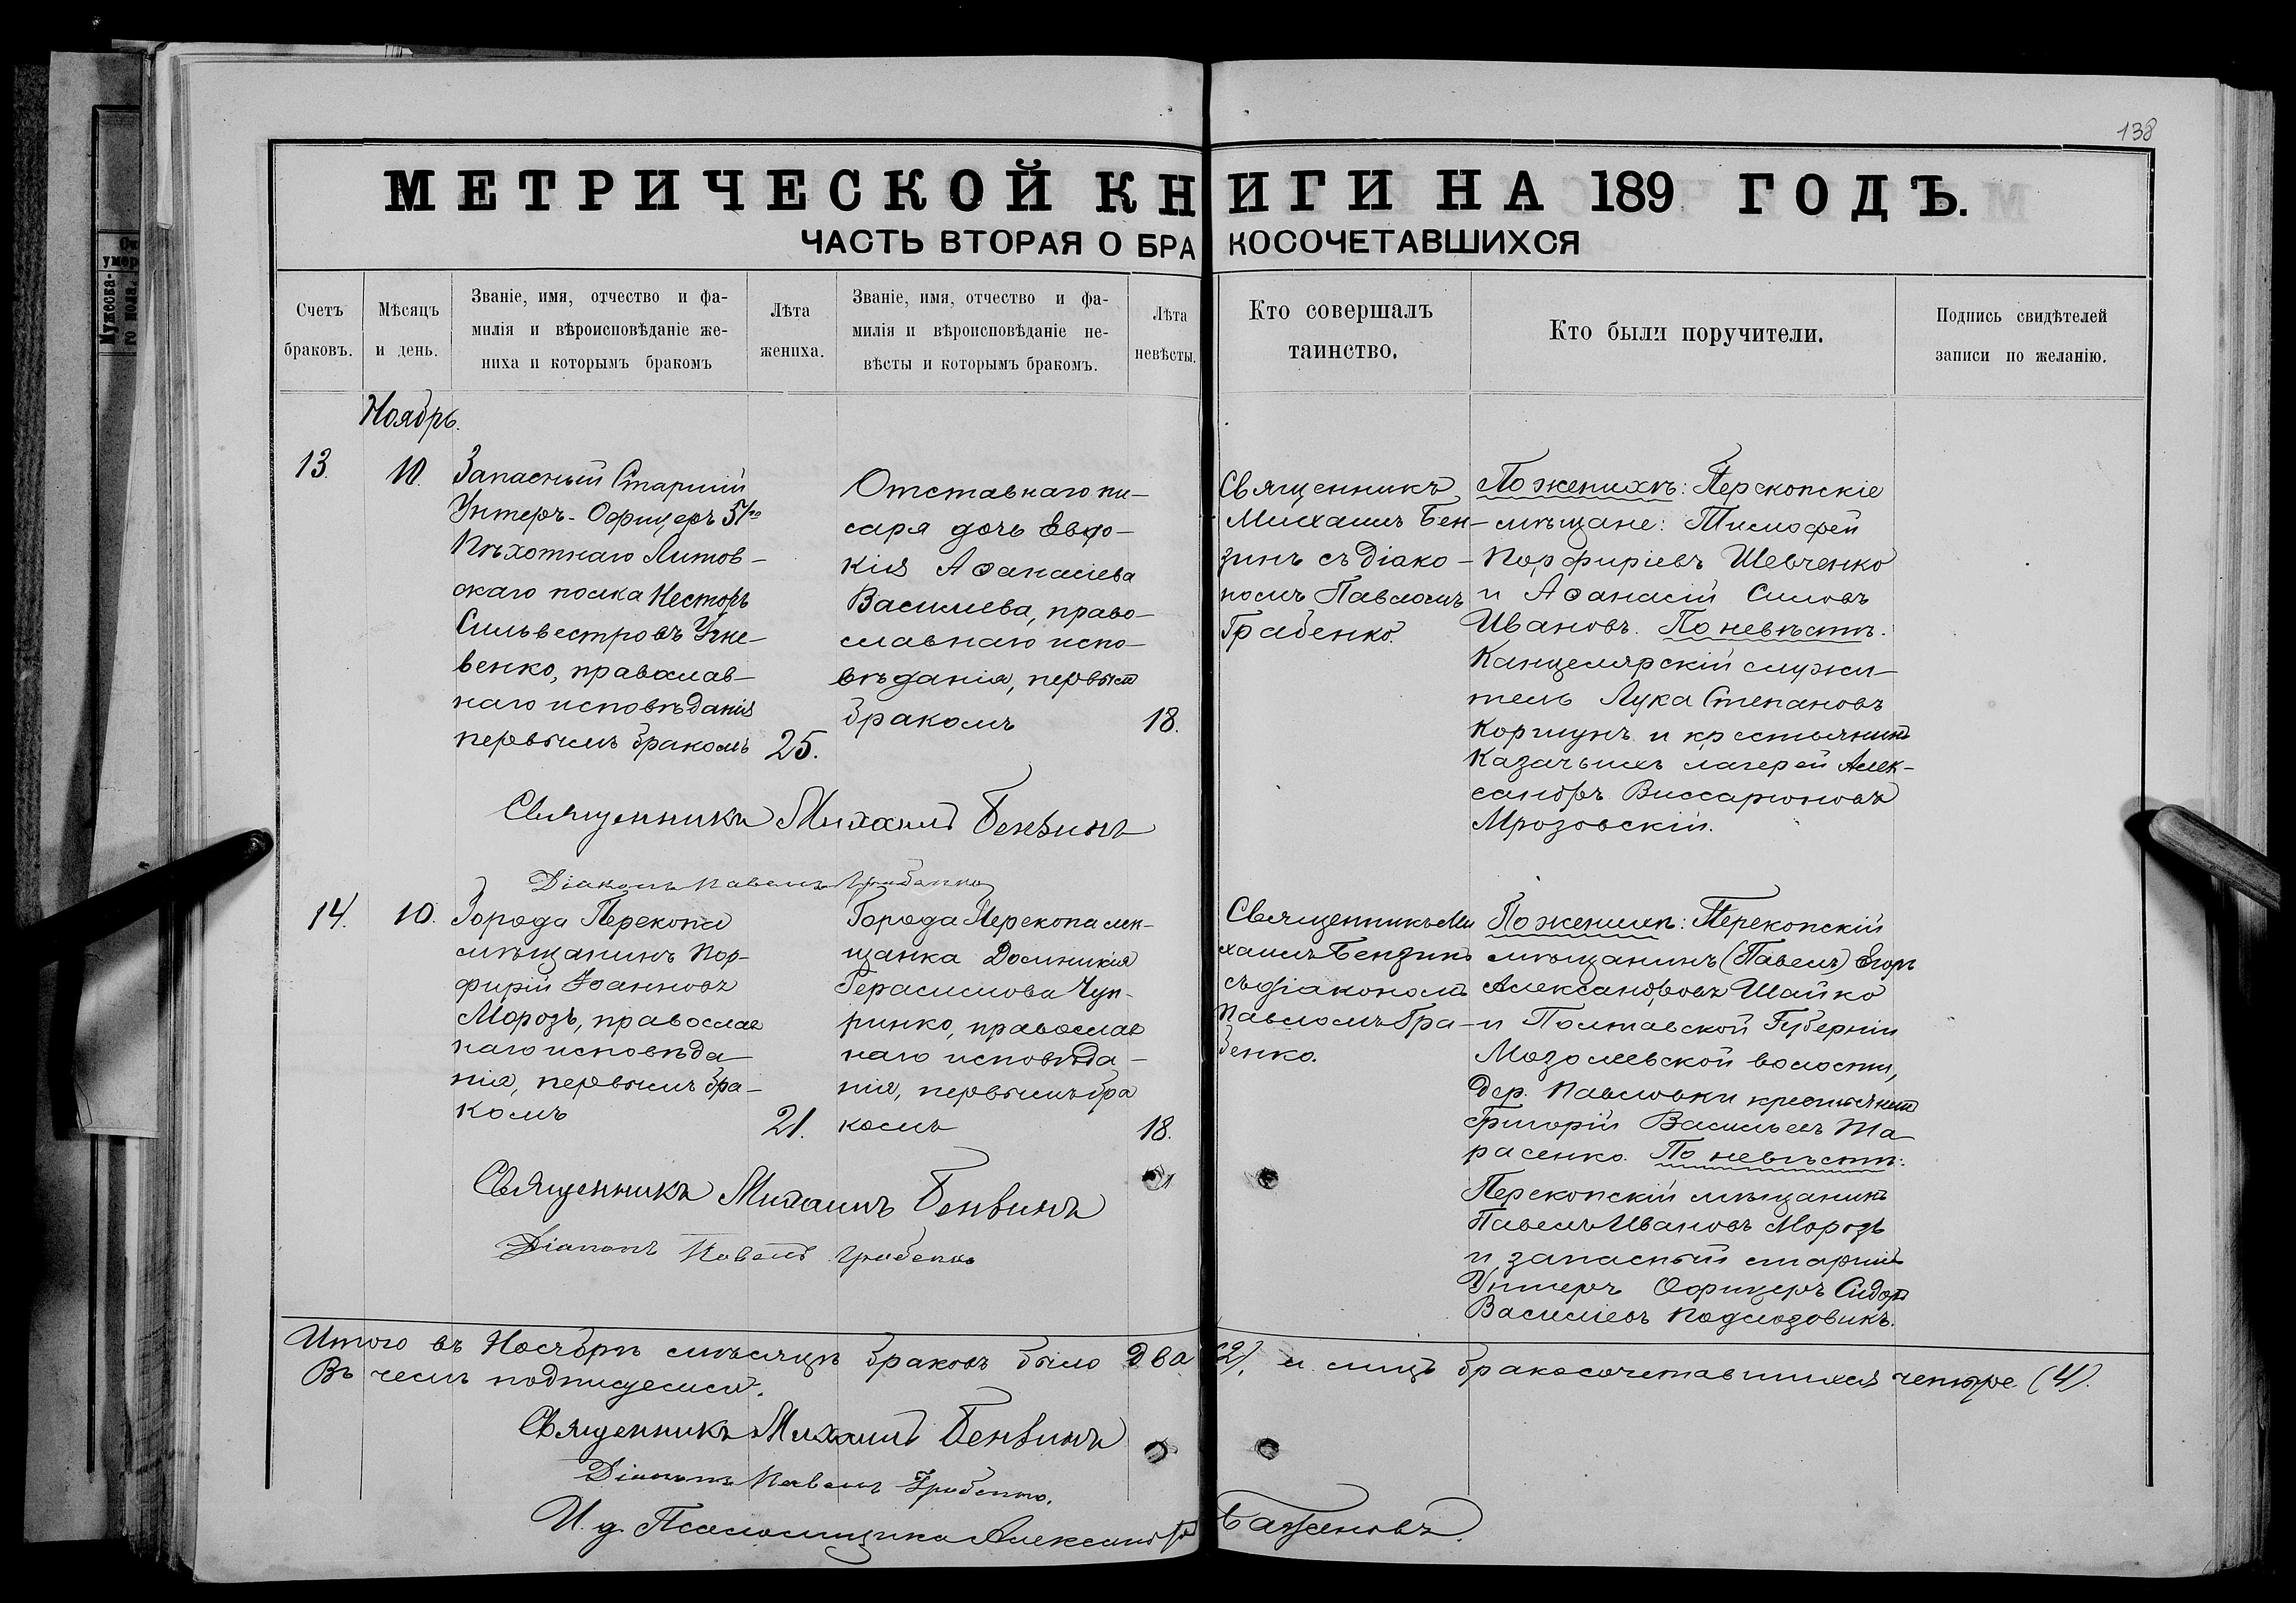 138
МЕТРИЧЕСКОЙ КНИГИ НА 189 ГОДЪ.
ЧАСТЬ ВТОРАЯ О БРАКОСОЧЕТАВШИХСЯ
Счетъ
браковъ.
Мѣсяцъ
и день.
Званіе, имя, отчество и фа-
милія и вѣроисповѣданіе же-
ниха и которымъ бракомъ
Лѣта
жениха.
Званіе, имя, отчество и фа-
милія и вѣроисповѣданіе не-
вѣсты и которымъ бракомъ.
Лѣта
невѣсты.
Кто совершалъ
таинство.
Кто были поручители.
Подпись свидѣтелей
записи по желанію.
Ноябрь.
13.
10.
Запасный Старшій
Унтеръ-Офицеръ 51го
Пѣхотнаго Литов-
скаго полка Несторъ
Сильвестровъ
венко, православ-
наго исповѣданія
первымъ бракомъ
25.
Отставнаго пи-
саря дочь Евдо-
кія Аѳанасіева
Василиева, право-
славнаго испо-
вѣданія, первымъ
бракомъ
18.
Священникъ
Михаилъ Бен-
зинъ съ діако-
номъ Павломъ
Грабенко.
По женихѣ: Перекопскіе
мѣщане: Тимофей
Порфиріевъ Шевченко
и Аѳанасій Силовъ
Ивановъ. По невѣстѣ.
Канцелярскій служи-
тель Лука Степановъ
Коршунъ и крестьянинъ
Казачьихъ лагерей Алек-
сандръ Виссаріоновъ
Мрозовскій.
Священникъ Михаилъ Бензинъ
Діаконъ Павелъ Грабенко
14.
10.
Города Перекопа
мѣщанинъ Пор-
фирій Іоанновъ
Морозъ, православ
наго исповѣда
нія, первымъ бра-
комъ
21.
Города Перекопа мѣ-
щанка Домникія
Герасимова Чуп-
ринко, православ
наго исповѣда-
нія, первымъ бра
комъ
18.
Священникъ Ми
хаилъ Бензинъ
съ діакономъ
Павломъ Гра-
бенко.
По женихѣ: Перекопскій
мѣщанинъ (Павелъ) Егоръ
Александровъ Шайко
и Полтавской Губерніи
Мозолевской волости,
дер. Павловки крестьянинъ
Григорій Васильевъ Та
расенко. По невѣстѣ:
Перекопскій мѣщанинъ
Павелъ Ивановъ Морозъ
и запасный старшій
Унтеръ Офицеръ Сидоръ
Василіевъ
Священникъ Михаилъ Бензинъ
Діаконъ Павелъ Грабенко
Итого въ Ноябрѣ мѣсяцѣ браковъ было два (2), и лицъ бракосочетавшихся четыре (4).
Въ чемъ подписуемся.
Священникъ Михаилъ Бензинъ
Діаконъ Павелъ Грабенко.
И. д. Псаломщика Александръ Баженовъ.